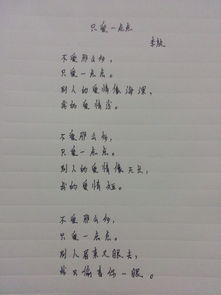 只爱一点点
李敖
不爱那么多,
只爱一点点。
别人的爱情像海深,
我的爱情浅。
不爱那么多,
只爱一点点。
别人的爱情像天长,
我的爱情短。
不爱那么多,
只爱一点点。
别人眉来又眼去,
我只偷看你一眼。